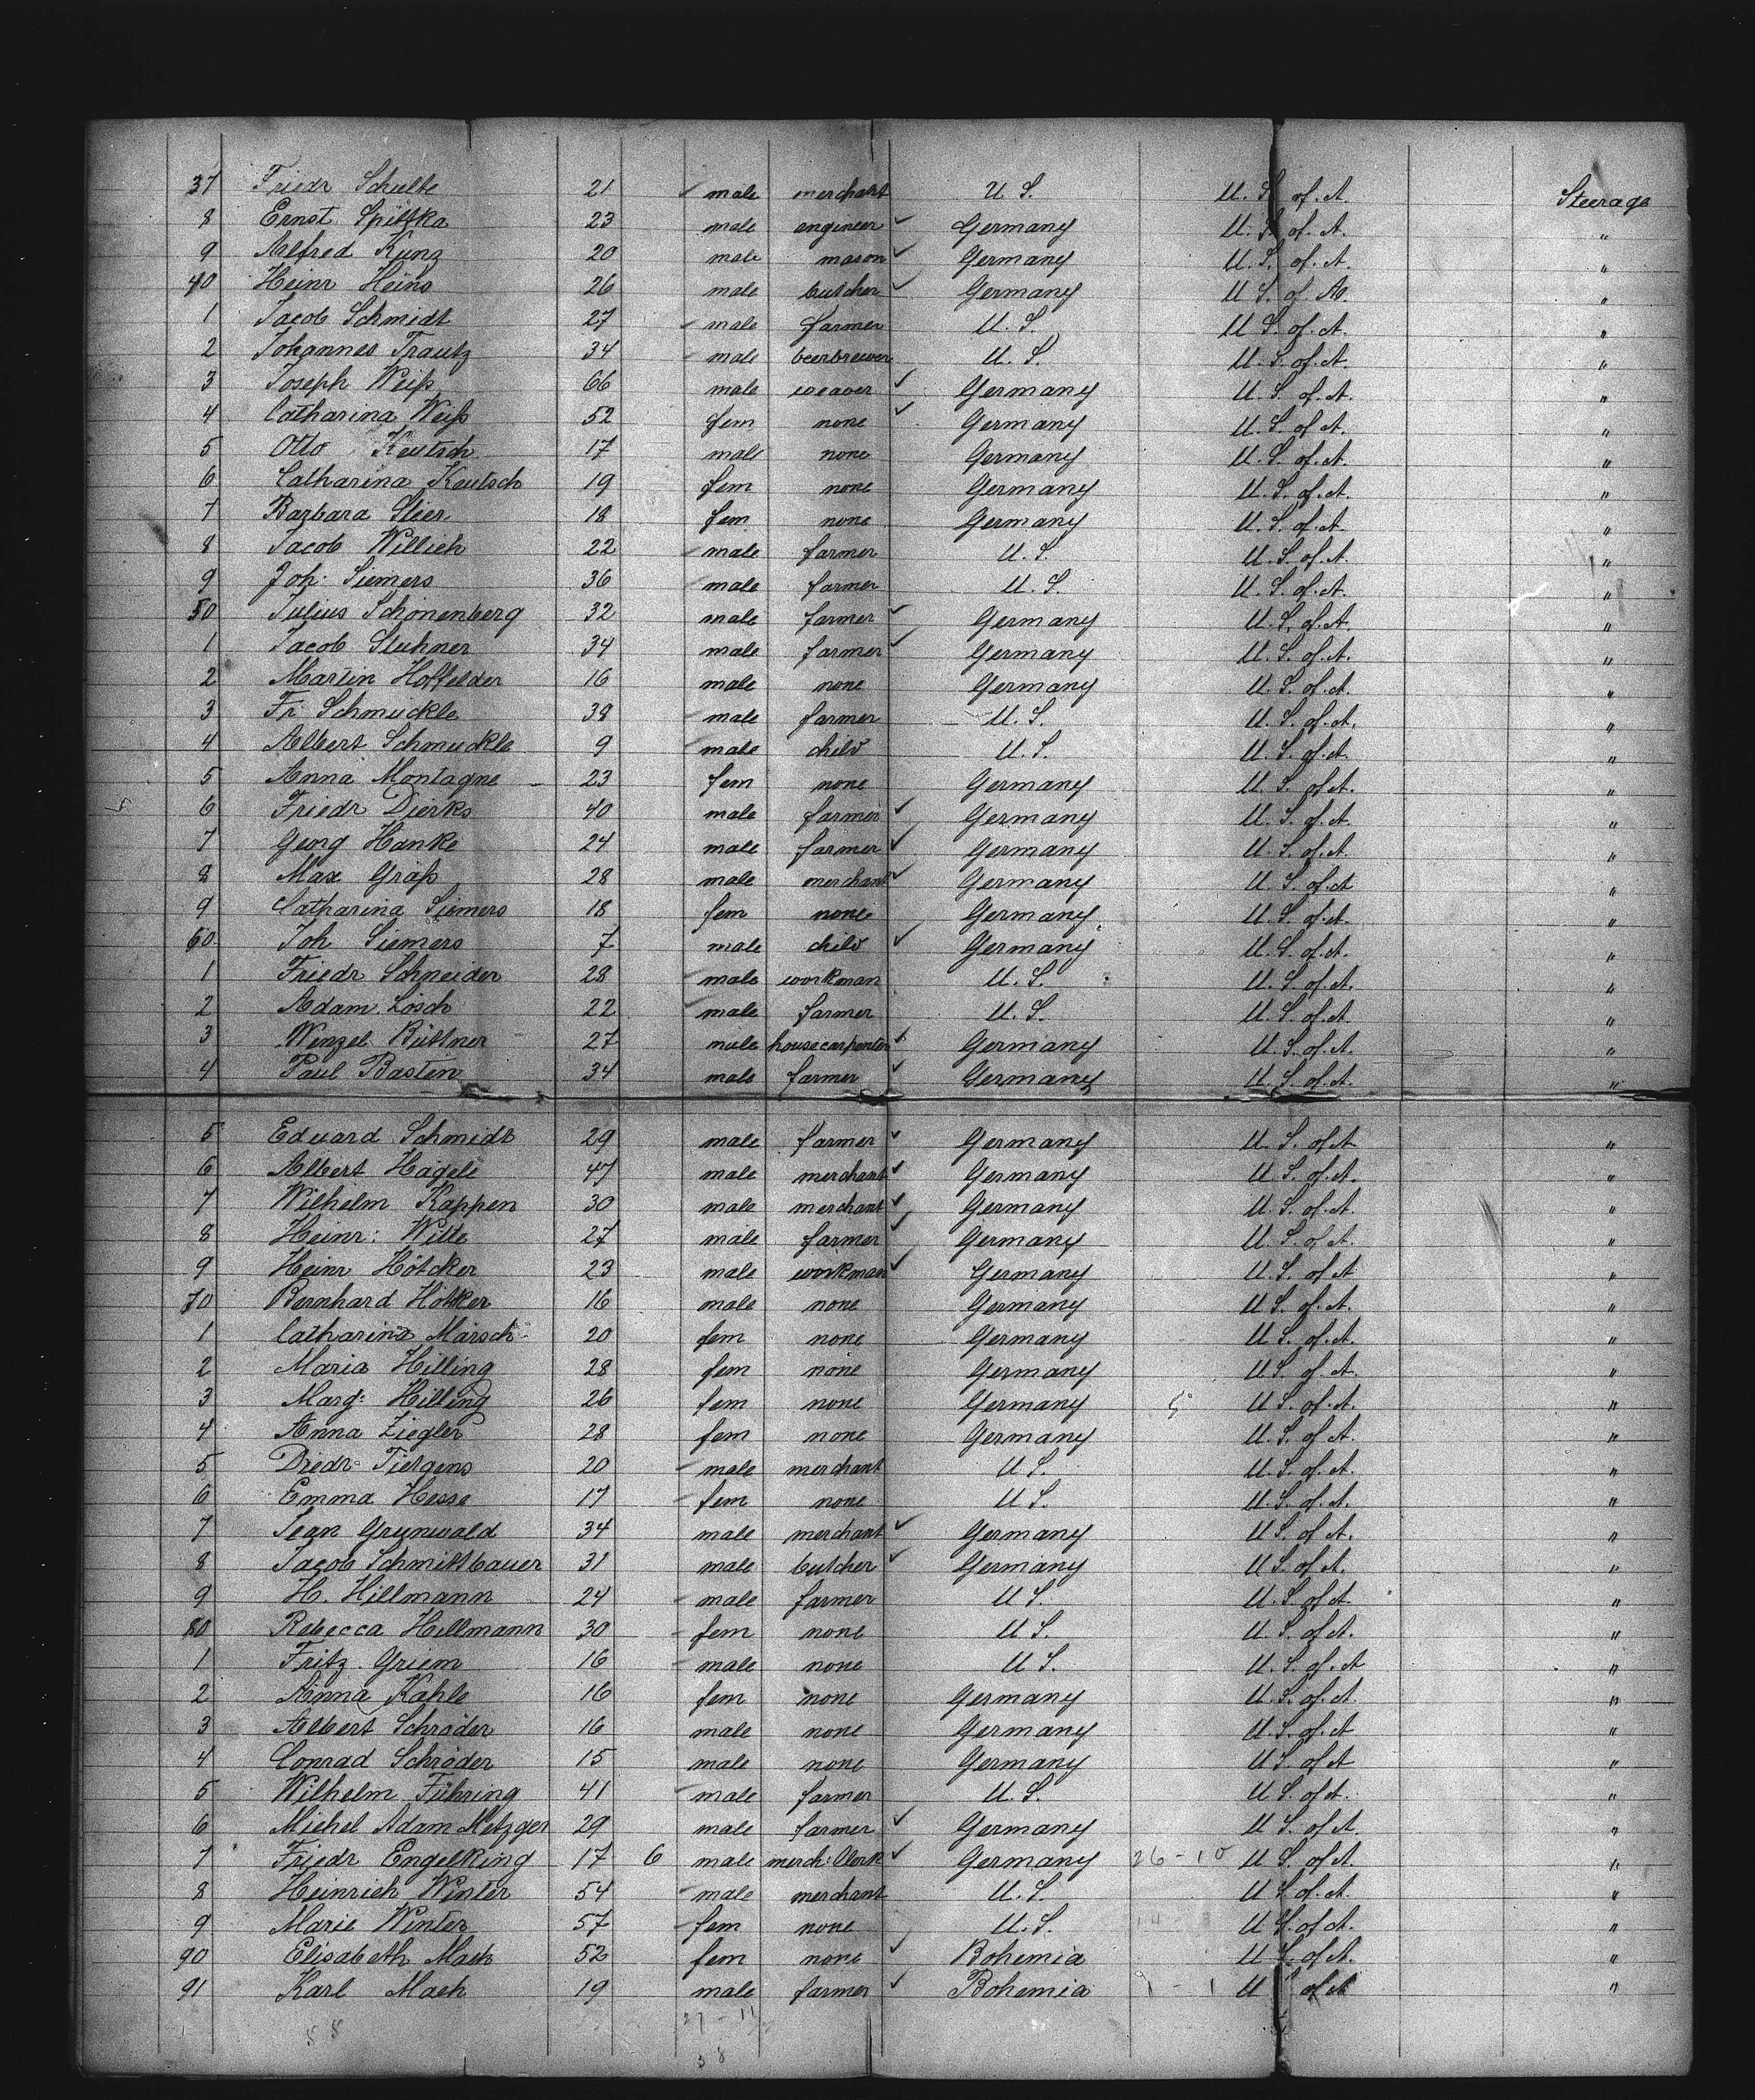 37 Friedr Schulte 21 male merchant U. S. U. S. of. A. Steerage
8 Ernst Spittka 23 male engineer ✓ Germany U. S. of. A. "
9 Alfred Kunz 20 male mason ✓ Germany U. S. of. A. "
40 Heinr Heins 26 male butcher ✓ Germany U S. of. A. "
1 Jacob Schmidt 27 male farmer U. S. U S. of. A. "
2 Johannes Trautz 34 male beerbrewer U. S. U. S. of. A. "
3 Joseph Weiß 66 male weaver ✓ Germany U. S. of. A. "
4 Catharina Weiß 52 fem none ✓ Germany U. S. of A. "
5 Otto Keutsch 17 male none Germany U. S. of. A. "
6 Catharina Keutsch 19 fem none Germany U. S. of. A. "
7 Barbara Stier 18 fem none Germany U. S. of. A. "
8 Jacob Willich 22 male farmer U. S. U. S. of. A. "
9 Joh: Siemers 36 male farmer U. S. U. S. of. A. "
50 Julius Schönenberg 32 male farmer ✓ Germany U. S. of. A. "
1 Jacob Stuhner 34 male farmer ✓ Germany U. S. of. A. "
2 Martin Hoffelder 16 male none Germany U. S. of. A. "
3 Fr Schmuckle 38 male farmer U. S. U. S. of. A. "
4 Albert Schmuckle 9 male child U. S. U. S. of. A. "
5 Anna Montagne 23 fem none Germany U. S. of. A. "
6 Friedr Dierks 40 male farmer ✓ Germany U. S. of. A. "
7 Georg Hanke 24 male farmer ✓ Germany U. S. of. A. "
8 Max Gräß 28 male merchant ✓ Germany U. S. of. A "
9 Catharina Siemers 18 fem none Germany U. S. of. A. "
60 Joh Siemers 7 male child ✓ Germany U. S. of. A. "
1 Friedr Schneider 28 male workman U. S. U. S of. A. "
2 Adam Lösch 22 male farmer U. S. U. S. of. A. "
3 Wenzel Büttner 27 male housecarpenter ✓ Germany U. S. of. A. "
4 Paul Bastin 34 male farmer ✓ Germany U. S. of. A. "
5 Eduard Schmidt 29 male farmer ✓ Germany U. S. of A "
6 Albert Hägele 47 male merchant ✓ Germany U. S. of. A. "
7 Wilhelm Kappen 30 male merchant ✓ Germany U. S. of. A. "
8 Heinr: Witte 27 male farmer ✓ Germany U. S. of A. "
9 Heinr Hötcker 23 male workman ✓ Germany U. S. of A "
70 Bernhard Hötker 16 male none Germany U S. of. A. "
1 Catharina Märsch 20 fem none Germany U S. of. A. "
2 Maria Hilling 28 fem none Germany U S. of A. "
3 Marg: Hilling 26 fem none Germany U. S. of. A. "
4 Anna Ziegler 28 fem none Germany U. S. of A. "
5 Diedr Tiergens 20 male merchant U S. U. S. of. A. "
6 Emma Hesse 17 fem none U S. U. S. of. A. "
7 Jean Grunwald 34 male merchant ✓ Germany U S. of A. "
8 Jacob Schmittbauer 31 male butcher ✓ Germany U S. of A. "
9 H. Hillmann 24 male farmer U S. U. S of A. "
80 Rebecca Hillmann 30 fem none U S. U. S. of A. "
1 Fritz Griem 16 male none U S. U. S. of. A "
2 Anna Kahle 16 fem none Germany U. S. of A. "
3 Albert Schröder 16 male none Germany U. S. of. A "
4 Conrad Schröder 15 male none Germany U S. of A "
5 Wilhelm Führing 41 male farmer U. S. U S. of A. "
6 Michel Adam Metzger 29 male farmer ✓ Germany U S. of A. "
7 Friedr Engelking 17 6 male merch: Clerk ✓ Germany 26 - 10 U S. of A. "
8 Heinrich Winter 54 male merchant U. S. U S. of. A. "
9 Marie Winter 57 fem none U. S. U. S. of A. "
90 Elisabeth Mach 52 fem none ✓ Bohemia U S. of A. "
91 Karl Mach 19 male farmer ✓ Bohemia U of A "